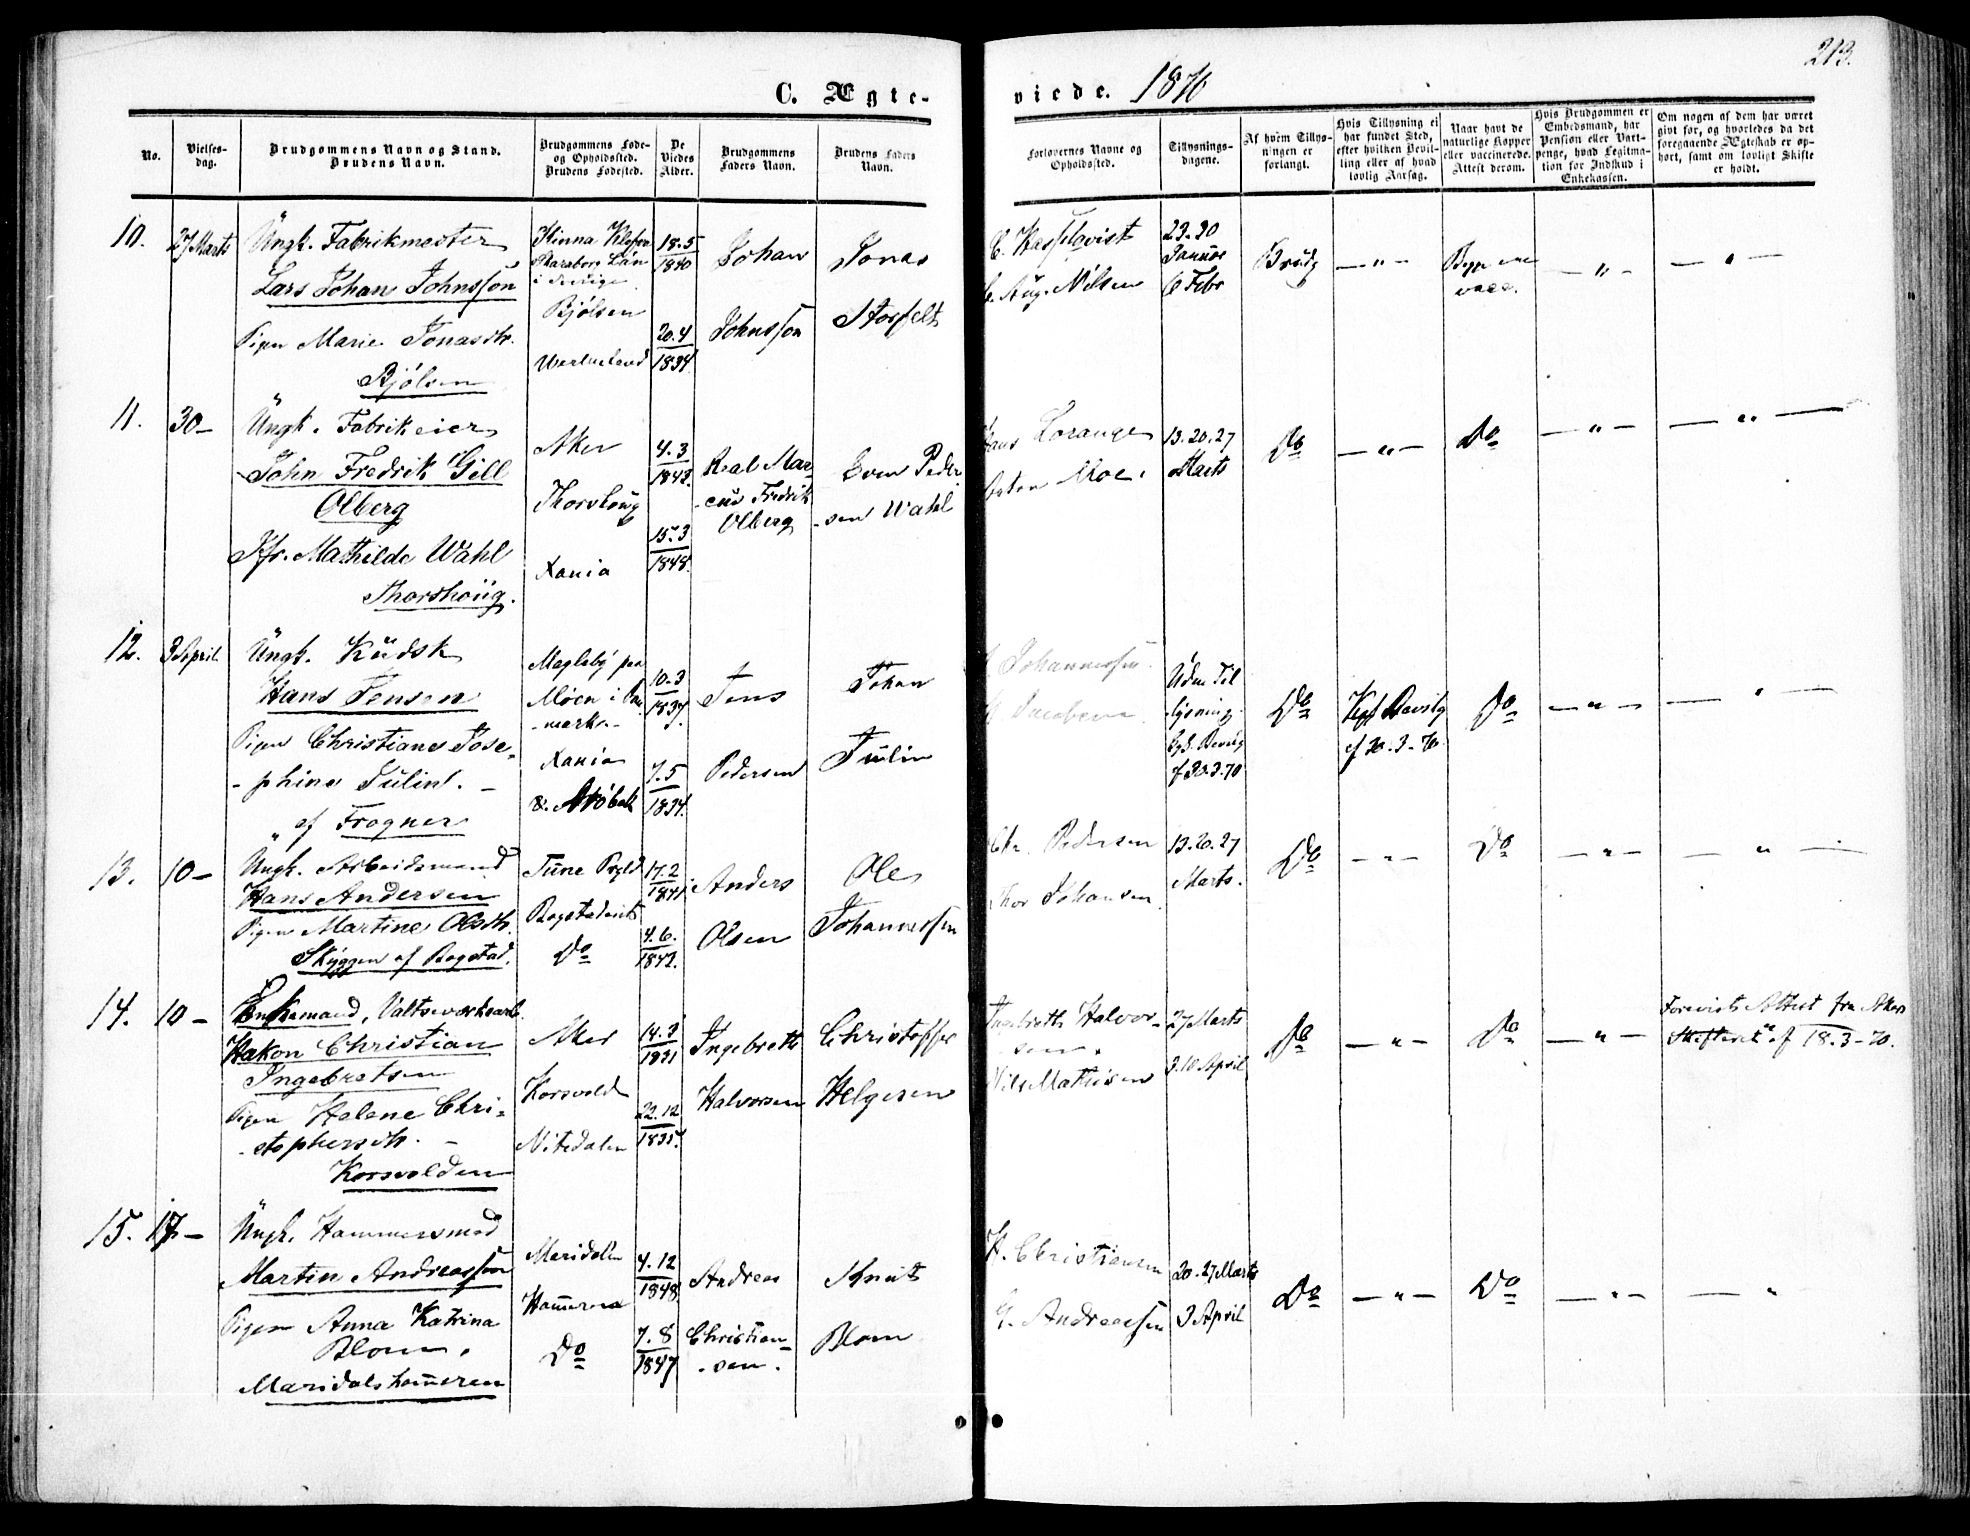 213.
C. Ægte-
viede. 1870
No.
Vielses-
dag.
Brudgommens Navn og Stand.
Brudens Navn.
Brudgommens Føde-
og Opholdssted.
Brudens Fødested.
De
Viedes
Alder.
Brudgommens
Faders Navn.
Brudens Faders
Navn.
Forlovernes Navne og
Opholdssted.
Tillysnings-
dagene.
Af hvem Tillys-
ningen er
forlangt.
Hvis Tillysning ei
har fundet Sted,
efter hvilken Bevil-
ling eller af hvad
lovlig Aarsag.
Naar havt de
naturlige Kopper
eller vaccinerede.
Attest derom.
Hvis Brudgommen er
Embedsmand, har
Pension eller Vart-
penge, hvad Legitima-
tion for Indskud i
Enkekassen.
Om nogen af dem har været
givt før, og hvorledes da det
foregaaende Ægteskab er op-
hørt, samt om lovligt Skifte
er holdt.
10.
27 Marts
Ungk. Fabrikmester
Lars Johan Johnsson
Pigen Marie Jonasdtr.
Bjølsen
Kinna
Skaraborg Län
i Sverige
Bjølsen
Wermeland
18.5
1840
20.4
1834.
Johan
Johnsson
Jonas
Storfelt
C. Hasselqvist
C. Aug. Nilsen
23.30
Januar
6 Febr
Brudg
— " —
Begge
vacc.
— " —
— " —
11.
30 —
Ungk. Fabrikeier
John Fredrik Gill
Olberg
Jfr. Mathilde Wahl
Thorshoug.
Aker
Thorshoug
Xania
4.3
1843.
15.3
1848.
Real Mar-
cus Fredrik
Olberg
Even Peder-
-sen Wahl
Hans Lorange
Anton Moe.
13.20.27
Marts
Do
— " —
Do
— " —
— " —
12.
3 April
Ungk. Kudsk
Hans Jensen
Pigen Christiane Jose-
-phine Julin. —
" af Frogner
Magleby paa
Møen i Dan-
-mark.-
Xania
&. Drøbak
10.3
1837.
7.5
1834.
Jens
Pedersen
Johan
Julin
Johannessen.
Jacobsen.
Uden Til-
lysning.
kgl. Bevilg
af 30.3.70
Do
Kgl Bevilg
af 30.3-70
Do
— " —
— " —
13.
10 —
Ungk. Arbeidsmand
Hans Andersen
Pigen Martine Olsdtr.
Skyggen af Bogstad.
Tune Prgld
Bogstadeiet
Do
17.2
1841.
4.6.
1842.
Anders
Olsen
Ole
Johannessen
Chr. Pedersen
Thor Johansen
13.20.27
Marts.
Do
— " —
Do
— " —
— " —
14.
10 —
Enkemand, Valtsværksarb.
Hakon Christian
Ingebretsen
Pigen Helene Chri-
-stophersdtr. —
Korsvolden
Aker
Korsvold
Nitedalen
14.3
1831
22.12
1835.
Ingebreth
Halvorsen
Christoffer
Helgesen
Ingebreth Halvor-
sen.
Nils Mathisen
27 Marts
3.10 April
Do
— " —
Do
— " —
Forevist Attest fra Aker
Skifteret af 18.3-70.
15.
17 —
Ungk. Hammersmed
Martin Andreassen
Pigen Anna Katrina
Blom,
Maridalshammeren
Maridalen
Hammeren
Do
4.12
1848.
7.8
1847
Andreas
Christian-
-sen.
Knut
Blom
H. Christiansen
G. Andreassen
20.27 Marts
3 April
Do
— " —
Do
— " —
— "